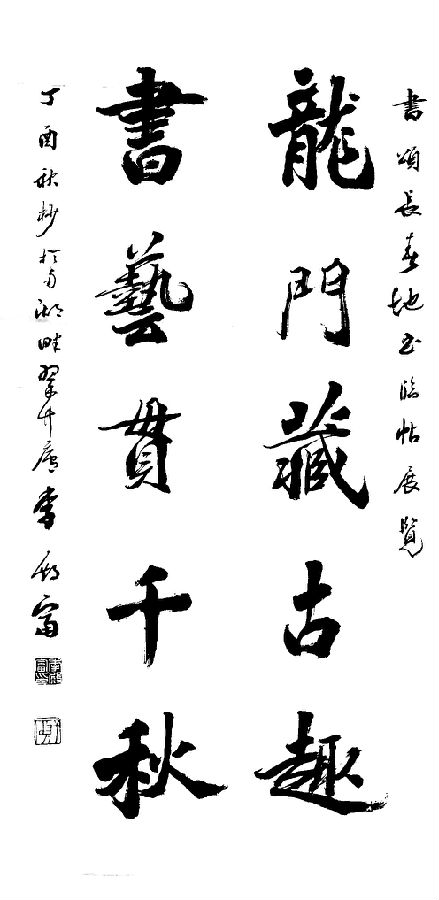 書頌長春地書臨帖展覽
龍門藏古趣
書藝貫千秋
丁酉秋杪於南湖畔翠竹居李